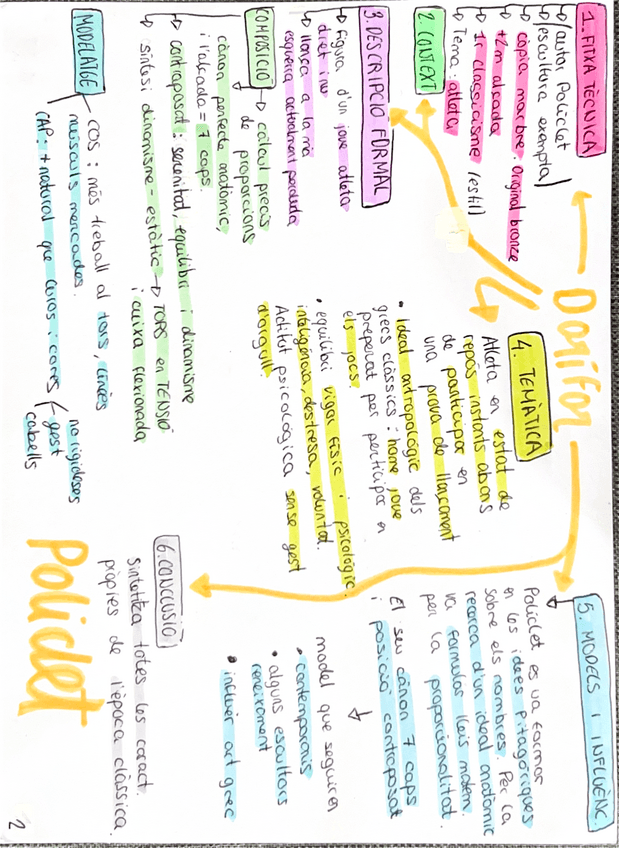 Dorífor
1. FITXA TÈCNICA
autor Policlet
escultura exempta
còpia marbre. Original bronze
+2m alçada
1r classicisme (estil)
Tema: atleta
2. CONTEXT
3. DESCRIPCIÓ FORMAL
Figura d'un jove atleta
dret i nu
llança a la mà
esquerra actualment perduda
COMPOSICIÓ
càlcul precís
de proporcions
cànon perfecte anatòmic,
i l'alçada = 7 caps.
contraposat: serenitat, equilibri i dinamisme
síntesi dinamisme - estàtic → TORS en TENSIÓ
i cuixa flexionada
MODELATGE
COS: més treball al tors, línies
músculs marcades.
CAP: + natural que Curos i Cores
no rigideses
gest
cabells
4. TEMÀTICA
Atleta en estat de
repòs instants abans
de participar en
una prova de llançament
• Ideal antropològic dels
grecs clàssics: home jove
preparat per participar en
els jocs.
• equilibri vigor físic i psicològic.
intel·ligència, destresa, voluntat.
Actitud psicològica sense gest
d'orgull.
5. MODELS I INFLUÈNC.
Policlet es va formar
en les idees Pitagòriques
sobre els nombres. Per la
recerca d'un ideal anatòmic
va formular lleis matem.
per la proporcionalitat.
El seu cànon 7 caps
i posició contraposat
model que seguiren
• contemporanis
• alguns escultors
reneixement
• influir art grec
6. CONCLUSIÓ
Sintetitza totes les caract.
pròpies de l'època clàssica.
Policlet
2